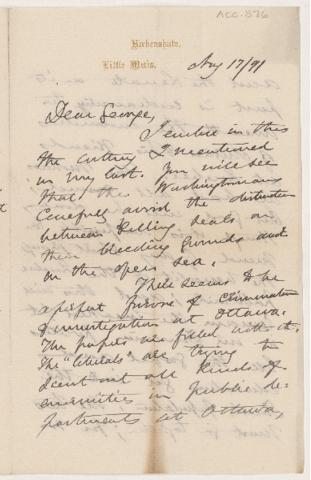 ACC. 876
Birkenshaw,
Little Metis,
Aug 17/91
Dear George,
I enclose in this
the cutting I mentioned
in my last. You will see
that the Washingtonians
carefully avoid the distinction
between killing seals on
their breeding grounds and
in the open sea.
There seems to be
a perfect furore of crimination
& investigation at Ottawa.
The papers are filled with it.
The "liberals" are trying to
scent out all kinds of
enormities in public de-
partments at Ottawa,